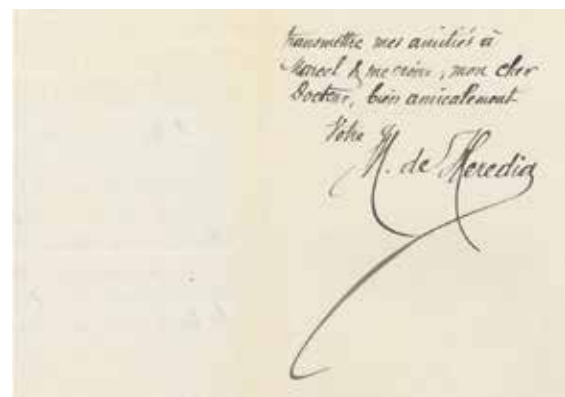 transmettre mes amitiés à
Marcel & me croire, mon cher
Docteur, bien amicalement
Votre
de Heredia